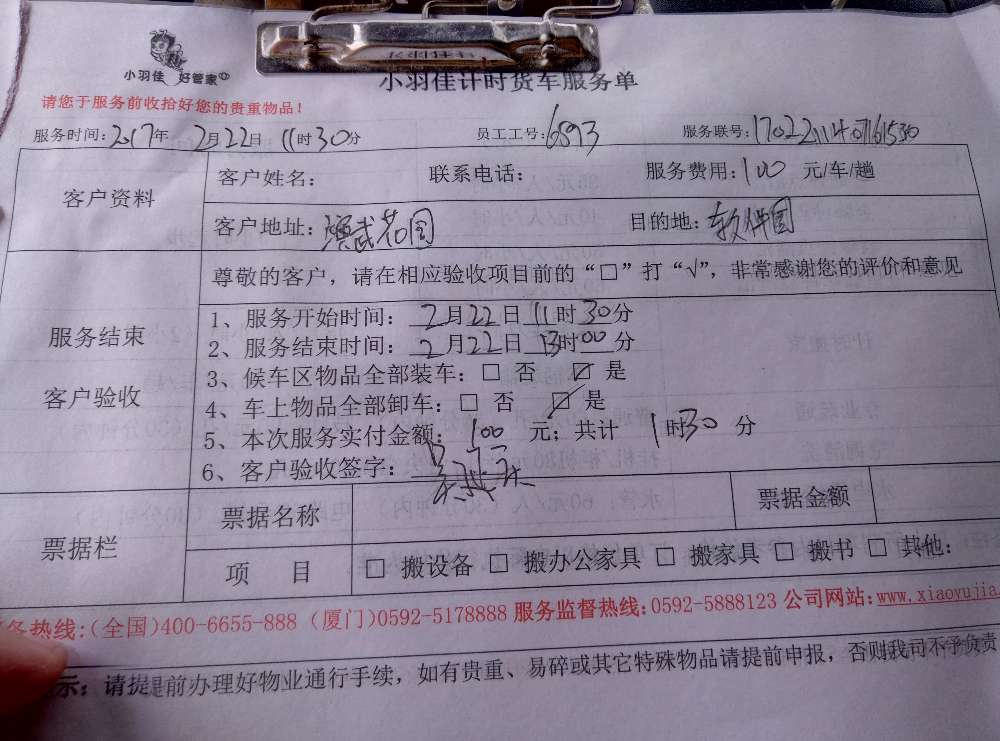 小羽佳 好管家
小羽佳计时货车服务单
请您于服务前收拾好您的贵重物品！
服务时间：2017年 2月22日 11时30分 员工工号：6893 服务联号：1702211407161530
客户资料
客户姓名： 联系电话： 服务费用：100 元/车/趟
客户地址：演武花园 目的地：软件园
尊敬的客户，请在相应验收项目前的“□”打“√”，非常感谢您的评价和意见
服务结束
客户验收
1、服务开始时间：2月22日 11时30分
2、服务结束时间：2月22日 13时00分
3、候车区物品全部装车：□ 否 ☑ 是
4、车上物品全部卸车：□ 否 ☑ 是
5、本次服务实付金额：100 元；共计 1时30分
6、客户验收签字：
票据栏
票据名称 票据金额
项 目 □ 搬设备 □ 搬办公家具 □ 搬家具 □ 搬书 □ 其他：
务热线：(全国)400-6655-888 (厦门)0592-5178888 服务监督热线：0592-5888123 公司网站：www.xiaoyujia.
示：请提前办理好物业通行手续，如有贵重、易碎或其它特殊物品请提前申报，否则我司不予负责